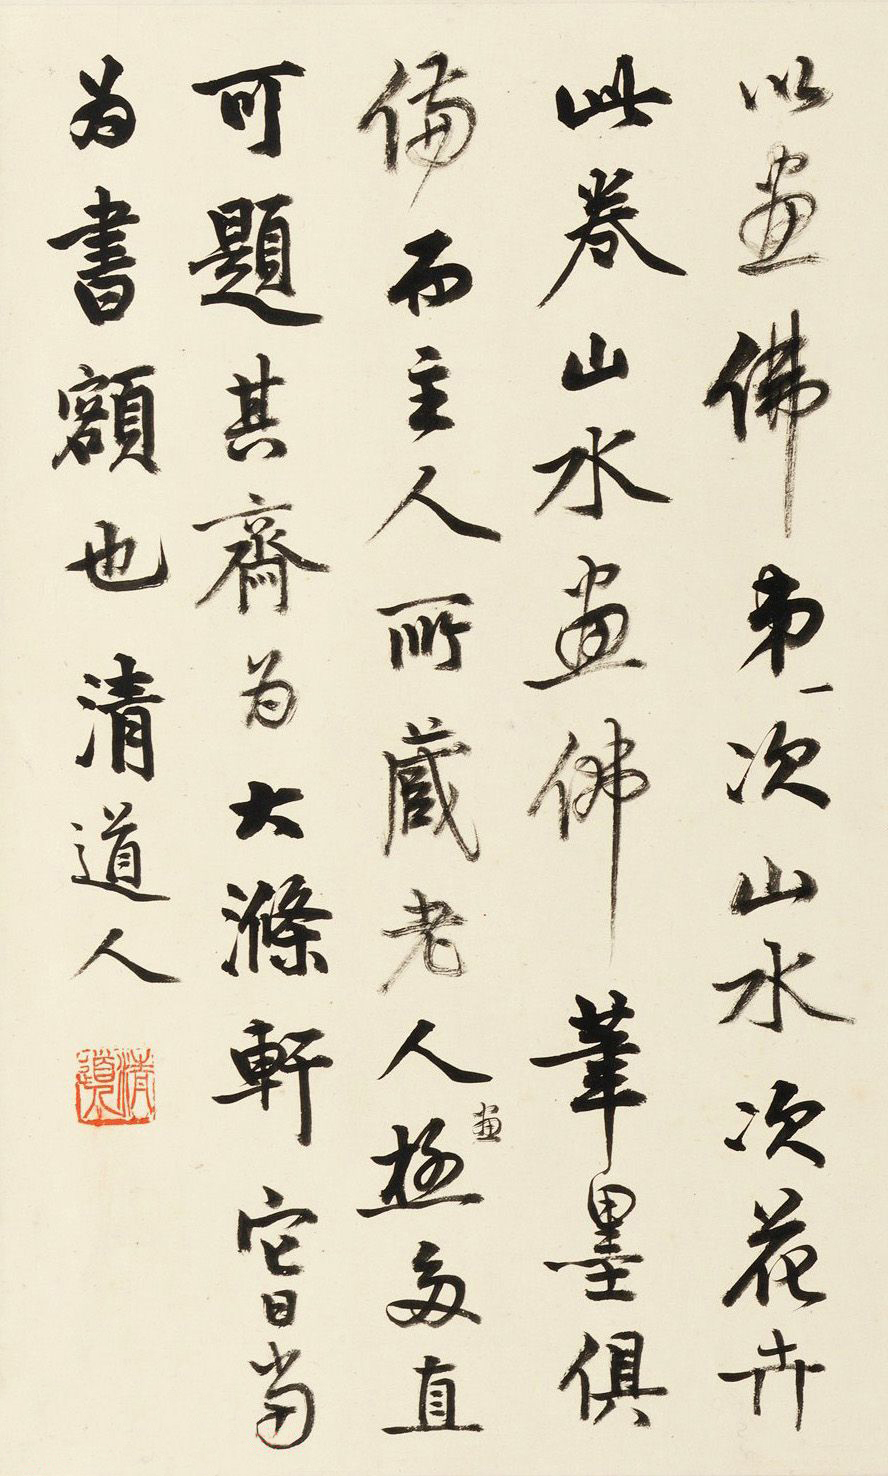 以画佛弟一次山水次花卉
此卷山水画佛笔墨俱
備而主人所蔵老人画極多直
可題其齋为大滌軒它日当
为書額也 清道人
清道人